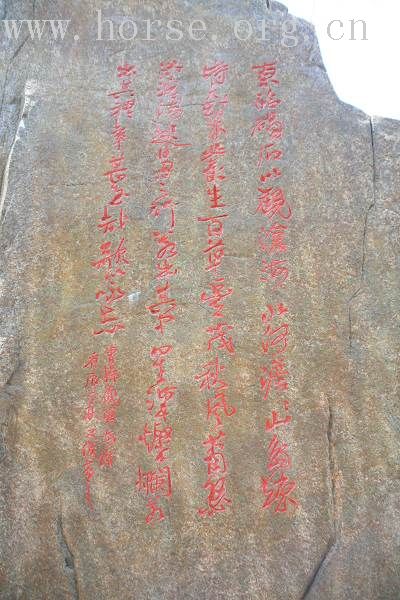 www.horse.org.cn
東臨碣石以觀滄海水何澹澹山島竦
峙樹木叢生百草豐茂秋風蕭瑟
洪波湧起日月之行若出其中星漢燦爛若
出其裡幸甚至哉歌以詠志
曹操觀滄海